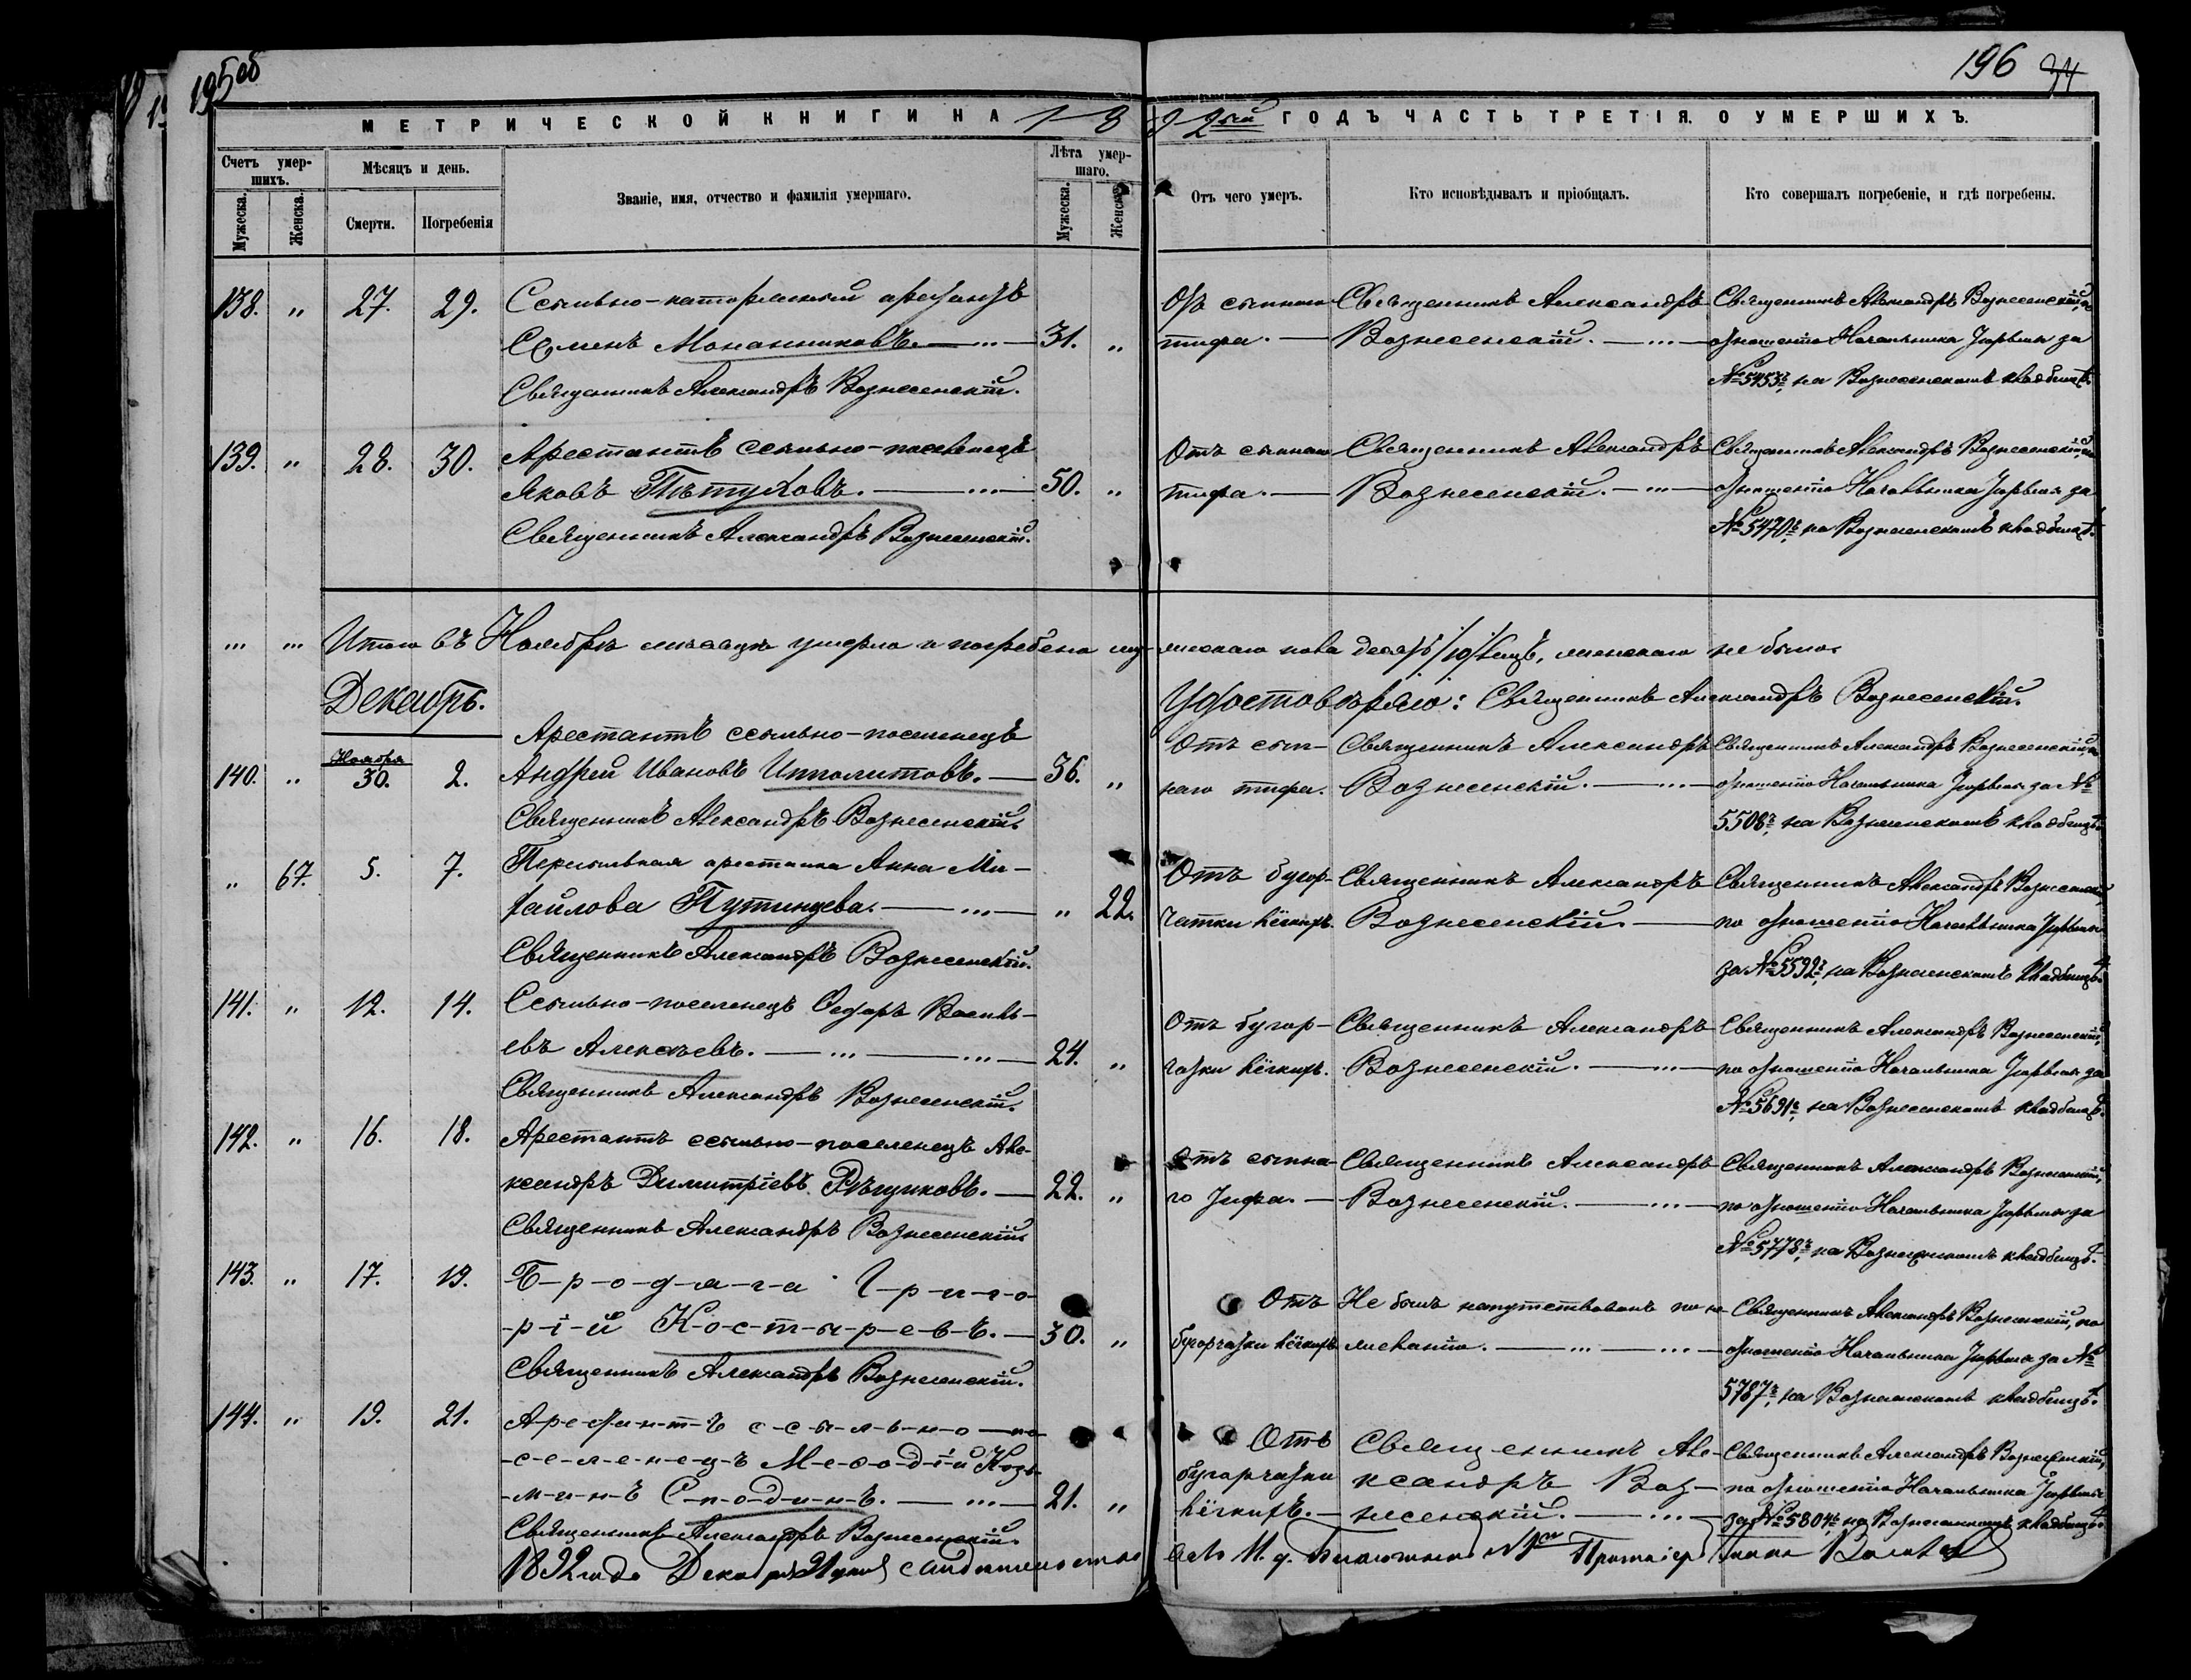 195об
196 34
МЕТРИЧЕСКОЙ КНИГИ НА 1892ой ГОДЪ ЧАСТЬ ТРЕТІЯ. О УМЕРШИХЪ.
Счетъ умершихъ.
Мужеска. Женска.
Мѣсяцъ и день.
Смерти. Погребенія
Званіе, имя, отчество и фамилія умершаго.
Лѣта умершаго.
Мужеска. Женска.
Отъ чего умеръ.
Кто исповѣдывалъ и пріобщалъ.
Кто совершалъ погребеніе, и гдѣ погребены.
138. „ 27. 29. Ссыльно-каторжный арестантъ
Семенъ 31. „
Священникъ Александръ Вознесенскій.
Отъ сыпнаго
тифа.
Священникъ Александръ
Вознесенскій.
Священникъ Александръ Вознесенскій, по
отношенію Начальника Тюрьмы за
№ 5453, на Вознесенскомъ кладбищѣ.
139. „ 28. 30. Арестантъ ссыльно-поселенецъ
Яковъ Пѣтуховъ. 50. „
Священникъ Александръ Вознесенскій.
Отъ сыпнаго
тифа.
Священникъ Александръ
Вознесенскій.
Священникъ Александръ Вознесенскій, по
отношенію Начальника Тюрьмы за
№ 5470, на Вознесенскомъ кладбищѣ.
Итого въ Ноябрѣ мѣсяцѣ умерло и погребено мужескаго пола десять /10/ лицъ, женскаго не было.
Декабрь.
Удостовѣряю: Священникъ Александръ Вознесенскій.
Арестантъ ссыльно-поселенецъ
140. „ Ноября 30. 2. Андрей Ивановъ Ипполитовъ. 36. „
Священникъ Александръ Вознесенскій.
Отъ сып-
наго тифа.
Священникъ Александръ
Вознесенскій.
Священникъ Александръ Вознесенскій, по
отношенію Начальника Тюрьмы за №
5508, на Вознесенскомъ кладбищѣ.
„ 67. 5. 7. Пересыльная арестантка Анна Ми-
хайлова Путинцева. „ 22.
Священникъ Александръ Вознесенскій.
Отъ бугор-
чатки лёгкихъ.
Священникъ Александръ
Вознесенскій.
Священникъ Александръ Вознесенскій,
по отношенію Начальника Тюрьмы
за № 5592, на Вознесенскомъ кладбищѣ.
141. „ 12. 14. Ссыльно-поселенецъ Ѳедоръ Василь-
евъ Алексѣевъ. 24. „
Священникъ Александръ Вознесенскій.
Отъ бугор-
чатки лёгкихъ.
Священникъ Александръ
Вознесенскій.
Священникъ Александръ Вознесенскій,
по отношенію Начальника Тюрьмы за
№ 5691, на Вознесенскомъ кладбищѣ.
142. „ 16. 18. Арестантъ ссыльно-поселенецъ Але-
ксандръ Димитріевъ Рѣщиковъ. 22. „
Священникъ Александръ Вознесенскій.
Отъ сыпна-
го тифа.
Священникъ Александръ
Вознесенскій.
Священникъ Александръ Вознесенскій,
по отношенію Начальника Тюрьмы за
№ 5778, на Вознесенскомъ кладбищѣ.
143. „ 17. 19. Б-р-о-д-я-г-а Г-р-и-г-о-
-р-і-й К-о-с-т-ы-р-е-в-ъ. 30. „
Священникъ Александръ Вознесенскій.
Отъ
бугорчатки лёгкихъ
Не былъ напутствованъ по не-
желанію.
Священникъ Александръ Вознесенскій, по
отношенію Начальника Тюрьмы за №
5787, на Вознесенскомъ кладбищѣ.
144. „ 19. 21. А-р-е-с-т-а-н-т-ъ с-с-ы-л-ь-н-о-по-
-с-е-л-е-н-е-ц-ъ М-е-ѳ-о-д-і-й Козь-
-м-и-н-ъ С-п-о-д-и-н-ъ. 21. „
Священникъ Александръ Вознесенскій.
Отъ
бугорчатки
лёгкихъ.
Священникъ Але-
ксандръ Воз-
несенскій.
Священникъ Александръ Вознесенскій,
по отношенію Начальника Тюрьмы
за № 5804, на Вознесенскомъ кладбищѣ.
1892 года Декабря 31 дня Протоіерей